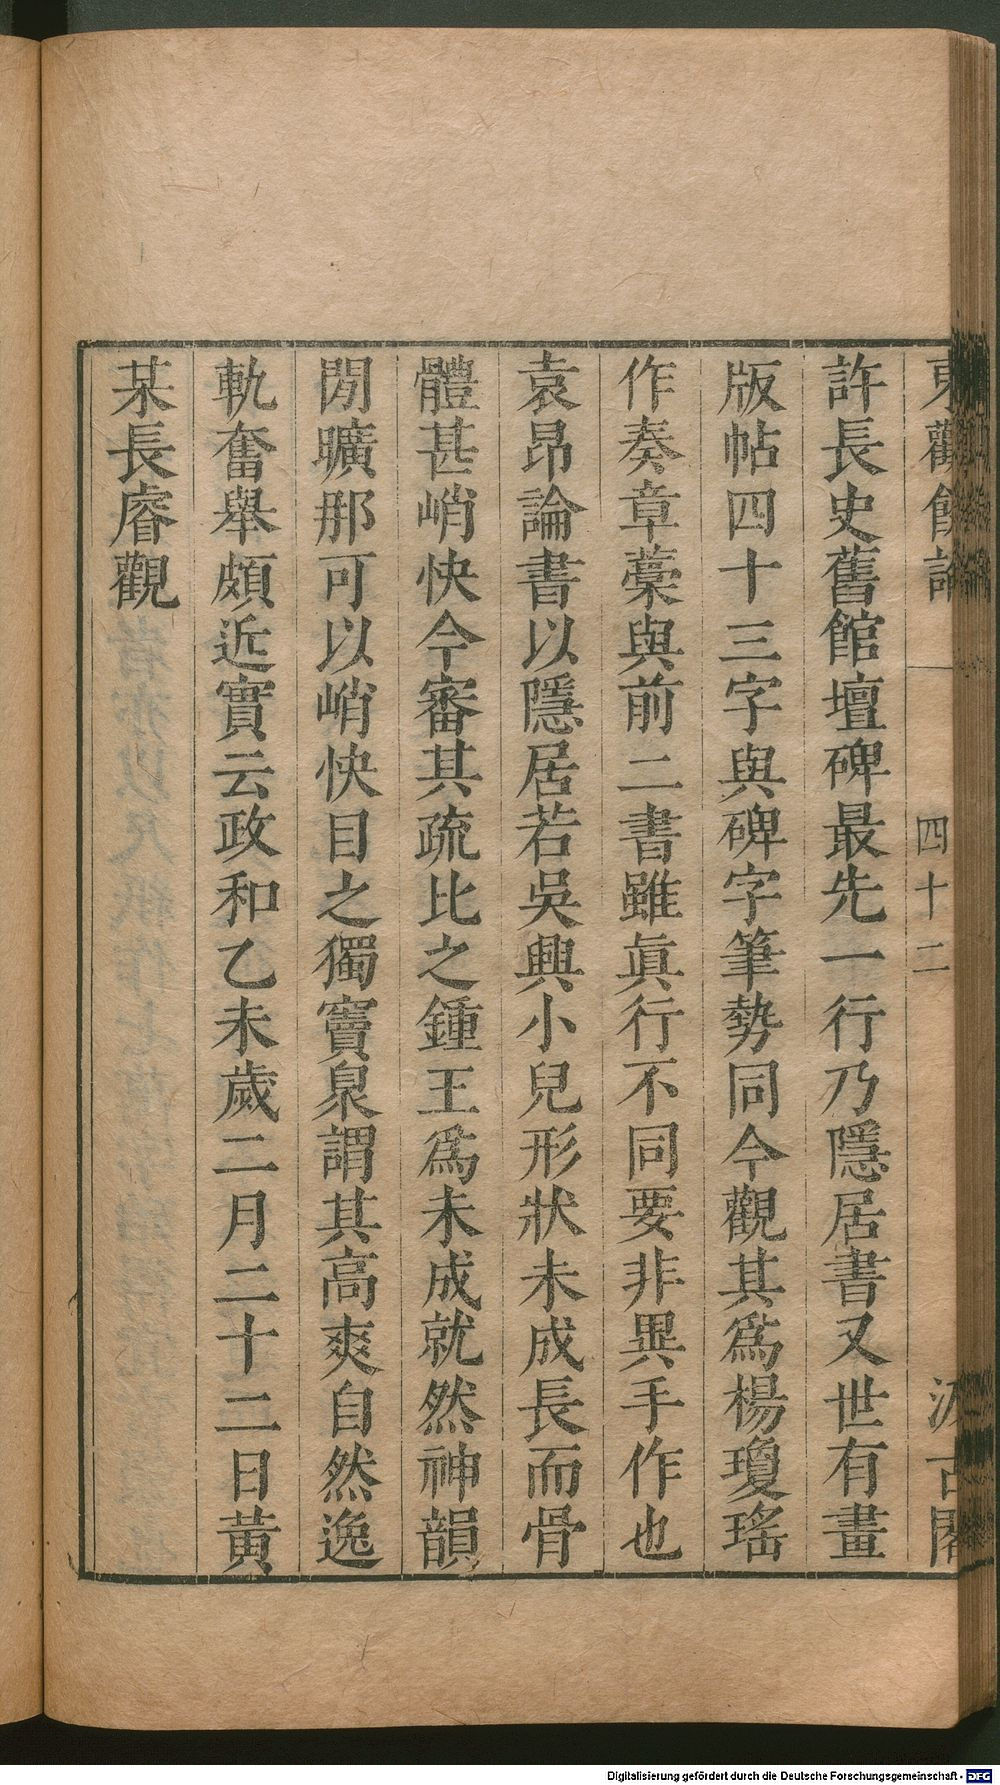 東觀餘論
四十二
汲古閣
許長史舊館壇碑最先一行乃隱居書又世有畫
版帖四十三字與碑字筆勢同今觀其爲楊瓊瑤
作奏章藁與前二書雖眞行不同要非異手作也
袁昂論書以隱居若吳興小兒形狀未成長而骨
體甚峭快今審其疏比之鍾王爲未成就然神韻
閒曠那可以峭快目之獨竇泉謂其高爽自然逸
軌奮舉頗近實云政和乙未歲二月二十二日黃
某長睿觀
Digitalisierung gefördert durch die Deutsche Forschungsgemeinschaft - DFG